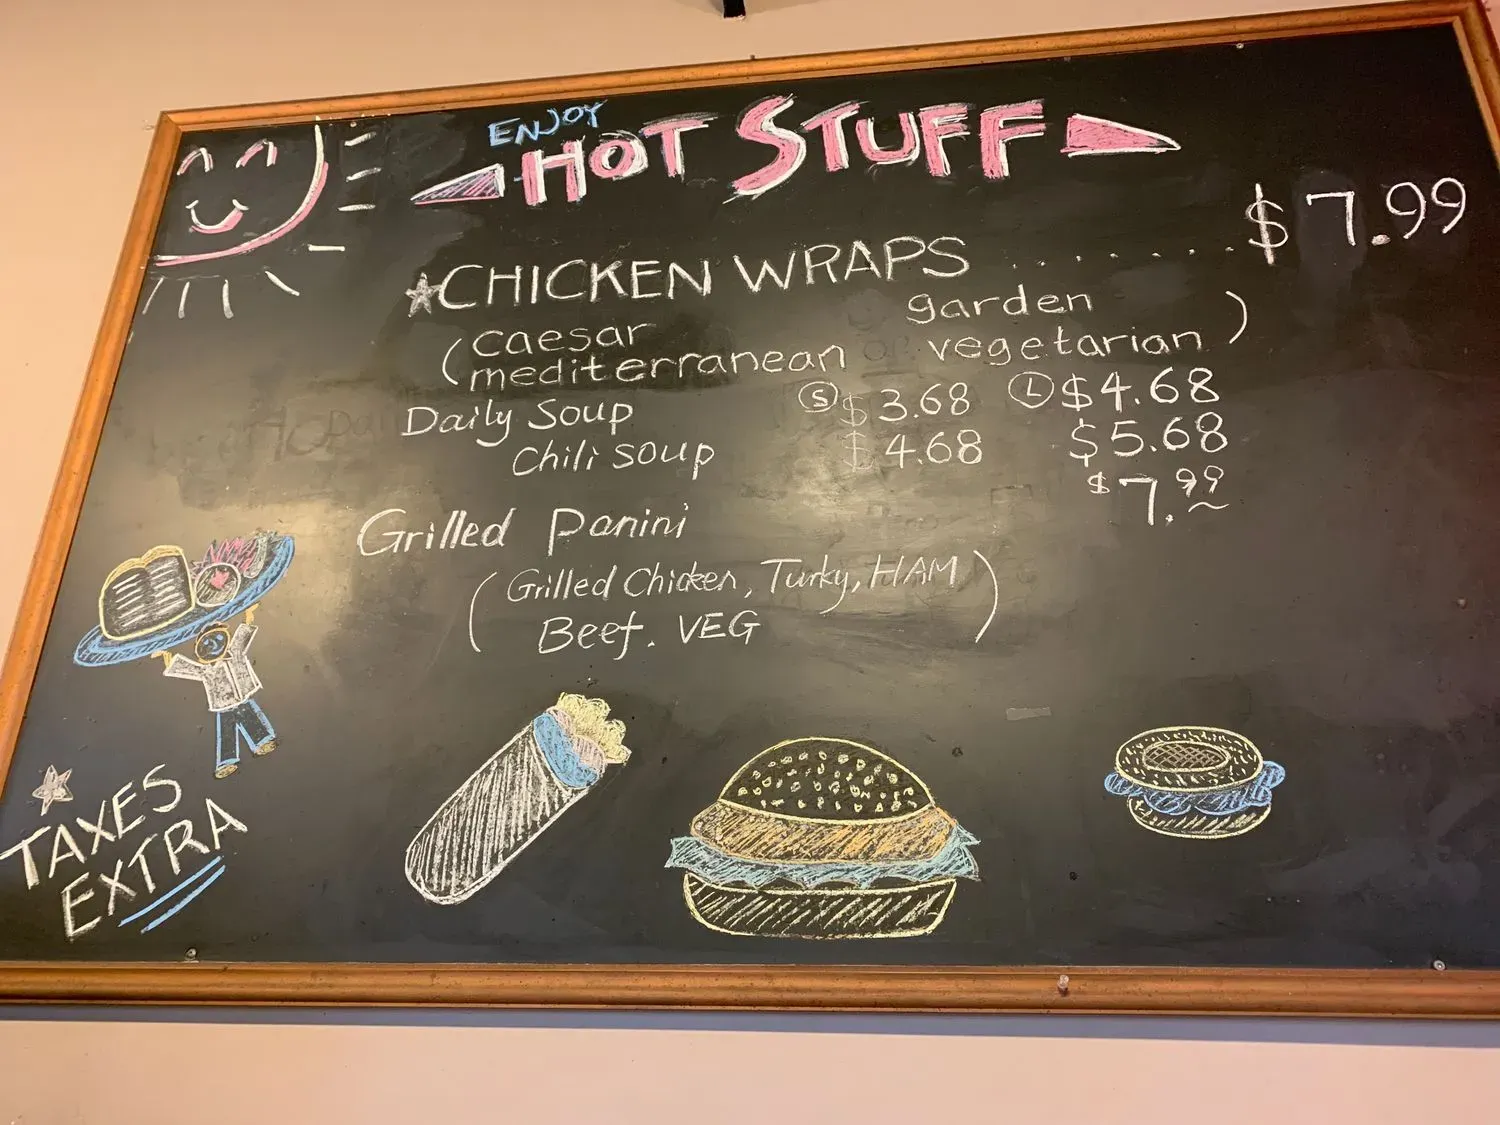 ENJOY
HOT STUFF
CHICKEN WRAPS . . . . . . . $7.99
(caesar garden
mediterranean or vegetarian)
Daily Soup Ⓢ $3.68 Ⓛ $4.68
Chili soup $4.68 $5.68
Grilled Panini $7.99
(Grilled Chicken, Turky, HAM
Beef. VEG)
TAXES
EXTRA